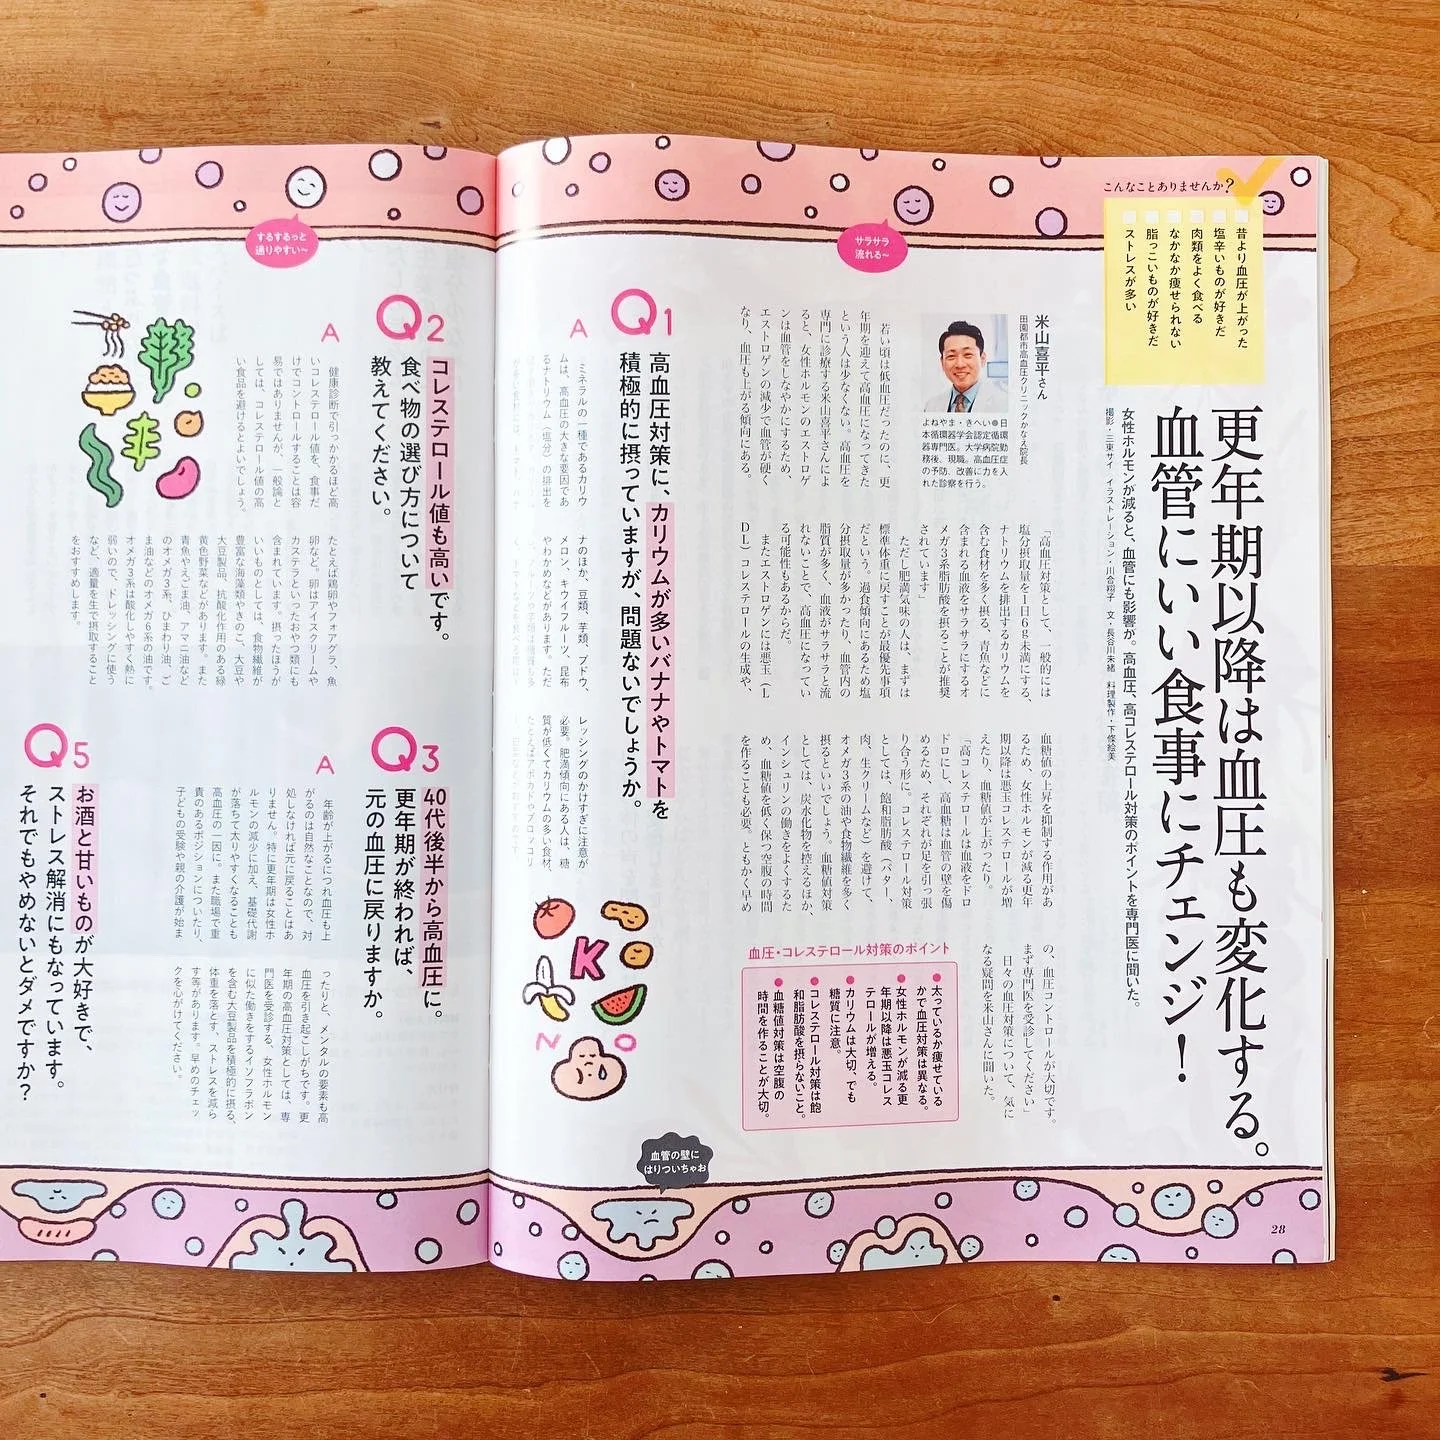 こんなことありませんか?
昔より血圧が上がった
塩辛いものが好きだ
肉類をよく食べる
なかなか痩せられない
脂っこいものが好きだ
ストレスが多い
更年期以降は血圧も変化する。
血管にいい食事にチェンジ!
女性ホルモンが減ると、血管にも影響が。高血圧、高コレステロール対策のポイントを専門医に聞いた。
撮影・三東サイ イラストレーション・川合翔子 文・長谷川未緒 料理製作・下條絵美
米山喜平さん
田園都市高血圧クリニックかなえ院長
よねやま・きへい●日
本循環器学会認定循環
器専門医。大学病院勤
務後、現職。高血圧症
の予防、改善に力を入
れた診察を行う。
若い頃は低血圧だったのに、更
年期を迎えて高血圧になってきた
という人は少なくない。高血圧を
専門に診療する米山喜平さんによ
ると、女性ホルモンのエストロゲ
ンは血管をしなやかにするため、
エストロゲンの減少で血管が硬く
なり、血圧も上がる傾向にある。
「高血圧対策として、一般的には
塩分摂取量を1日6g未満にする、
ナトリウムを排出するカリウムを
含む食材を多く摂る、青魚などに
含まれる血液をサラサラにするオ
メガ3系脂肪酸を摂ることが推奨
されています」
ただし肥満気味の人は、まずは
標準体重に戻すことが最優先事項
だという。過食傾向にあるため塩
分摂取量が多かったり、血管内の
脂質が多く、血液がサラサラと流
れないことで、高血圧になってい
る可能性もあるからだ。
またエストロゲンには悪玉(L
DL)コレステロールの生成や、
血糖値の上昇を抑制する作用があ
るため、女性ホルモンが減る更年
期以降は悪玉コレステロールが増
えたり、血糖値が上がったり。
「高コレステロールは血液をドロ
ドロにし、高血糖は血管の壁を傷
めるため、それぞれが足を引っ張
り合う形に。コレステロール対策
としては、飽和脂肪酸(バター、
肉、生クリームなど)を避けて、
オメガ3系の油や食物繊維を多く
摂るといいでしょう。血糖値対策
としては、炭水化物を控えるほか、
インシュリンの働きをよくするた
め、血糖値を低く保つ空腹の時間
を作ることも必要。ともかく早め
の、血圧コントロールが大切です。
まず専門医を受診してください」
日々の血圧対策について、気に
なる疑問を米山さんに聞いた。
血圧・コレステロール対策のポイント
●太っているか痩せている
かで血圧対策は異なる。
●女性ホルモンが減る更
年期以降は悪玉コレス
テロールが増える。
●カリウムは大切、でも
糖質に注意。
●コレステロール対策は飽
和脂肪酸を摂らないこと。
●血糖値対策は空腹の
時間を作ることが大切。
サラサラ
流れる〜
Q1
高血圧対策に、カリウムが多いバナナやトマトを
積極的に摂っていますが、問題ないでしょうか。
A
ミネラルの一種であるカリウ
ムは、高血圧の大きな要因であ
るナトリウム(塩分)の排出を
ナのほか、豆類、芋類、ブドウ、
メロン、キウイフルーツ、昆布
やわかめなどがあります。ただ
レッシングのかけすぎに注意が
必要。肥満傾向にある人は、糖
質が低くてカリウムの多い食材、
たとえばアボカドやブロッコリ
K
NO
血管の壁に
はりついちゃお
28
するするっと
通りやすい〜
Q2
コレステロール値も高いです。
食べ物の選び方について
教えてください。
A
健康診断で引っかかるほど高
いコレステロール値を、食事だ
けでコントロールすることは容
易ではありませんが、一般論と
しては、コレステロール値の高
い食品を避けるとよいでしょう。
たとえば鶏卵やフォアグラ、魚
卵など。卵はアイスクリームや
カステラといったおやつ類にも
含まれています。摂ったほうが
いいものとしては、食物繊維が
豊富な海藻類やきのこ、大豆や
大豆製品、抗酸化作用のある緑
黄色野菜などがあります。また
青魚やえごま油、アマニ油など
のオメガ3系、ひまわり油、ご
ま油などのオメガ6系の油です。
オメガ3系は酸化しやすく熱に
弱いので、ドレッシングに使う
など、適量を生で摂取すること
をおすすめします。
Q3
40代後半から高血圧に。
更年期が終われば、
元の血圧に戻りますか。
A
年齢が上がるにつれ血圧も上
がるのは自然なことなので、対
処しなければ元に戻ることはあ
りません。特に更年期は女性ホ
ルモンの減少に加え、基礎代謝
が落ちて太りやすくなることも
高血圧の一因に。また職場で重
責のあるポジションについたり、
子どもの受験や親の介護が始ま
ったりと、メンタルの要素も高
血圧を引き起こしがちです。更
年期の高血圧対策としては、専
門医を受診する、女性ホルモン
に似た働きをするイソフラボン
を含む大豆製品を積極的に摂る、
体重を落とす、ストレスを減ら
す等があります。早めのチェッ
クを心がけてください。
Q5
お酒と甘いものが大好きで、
ストレス解消にもなっています。
それでもやめないとダメですか?